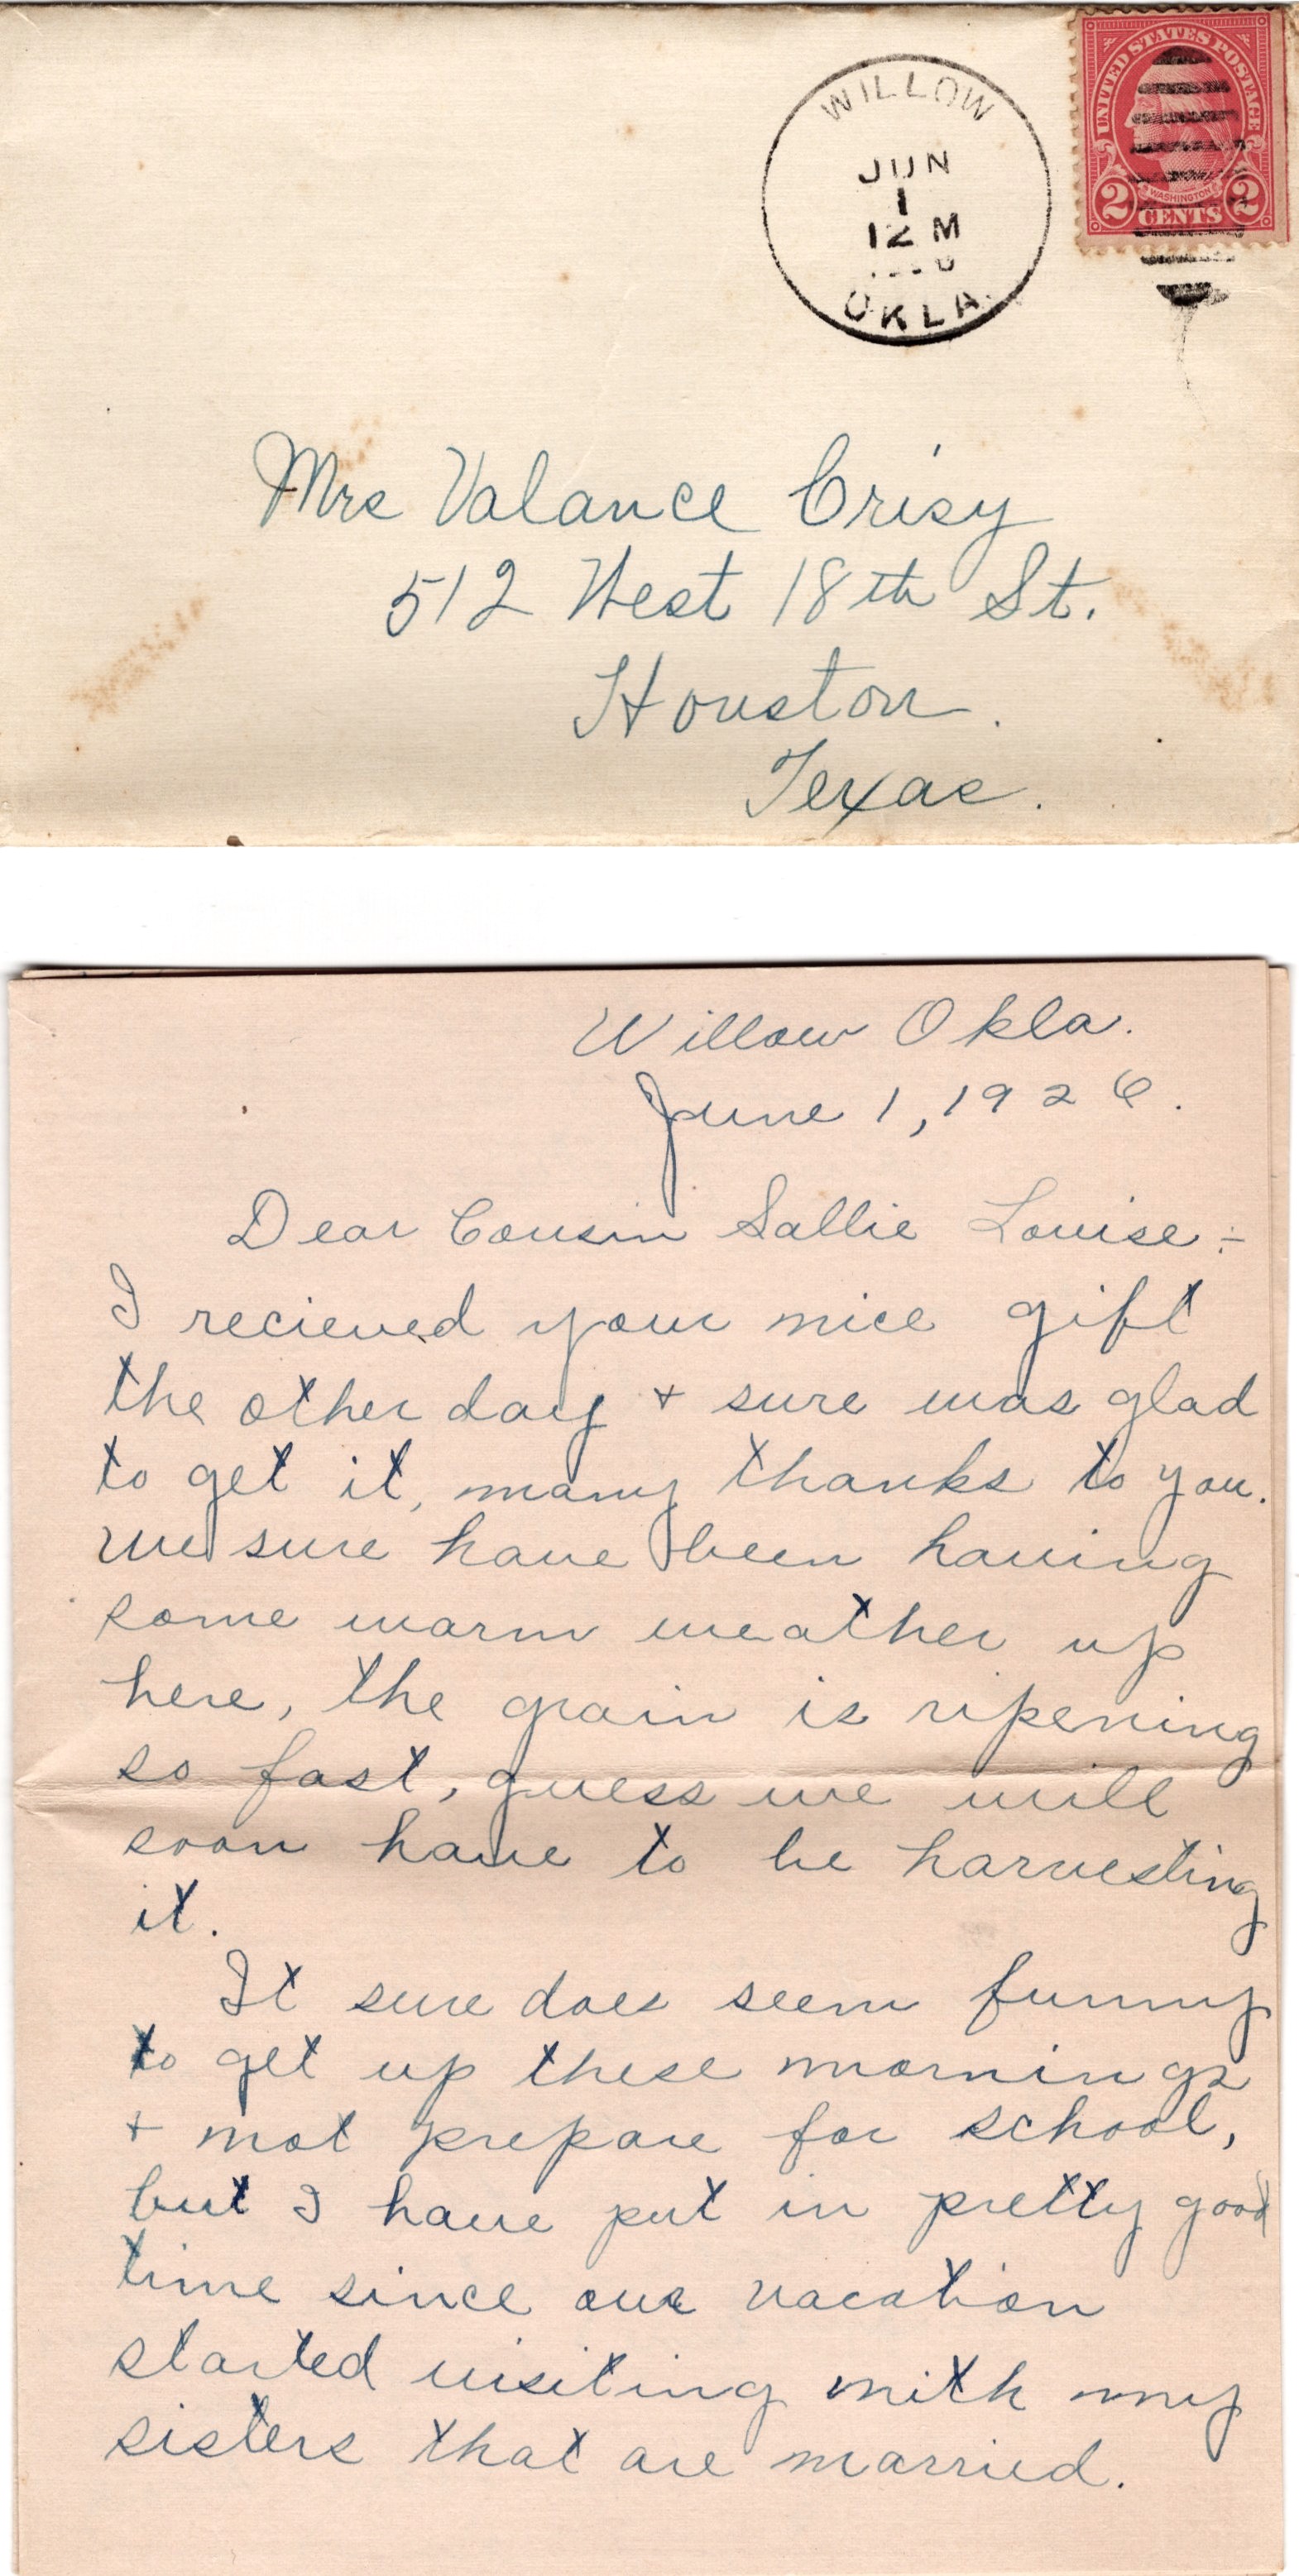 WILLOW
JUN
1
12 M
OKLA.
UNITED STATES POSTAGE
WASHINGTON
2 CENTS 2
Mrs Valance Crisy
512 West 18th St.
Houston.
Texas.
Willow Okla.
June 1, 1926.
Dear Cousin Sallie Louise:-
I recieved your nice gift
the other day + sure was glad
to get it, many thanks to you.
We sure have been having
some warm weather up
here, the grain is ripening
so fast, guess we will
soon have to be harvesting
it.
It sure does seem funny
to get up these mornings
+ not prepare for school,
but I have put in pretty good
time since our vacation
started visiting with my
sisters that are married.